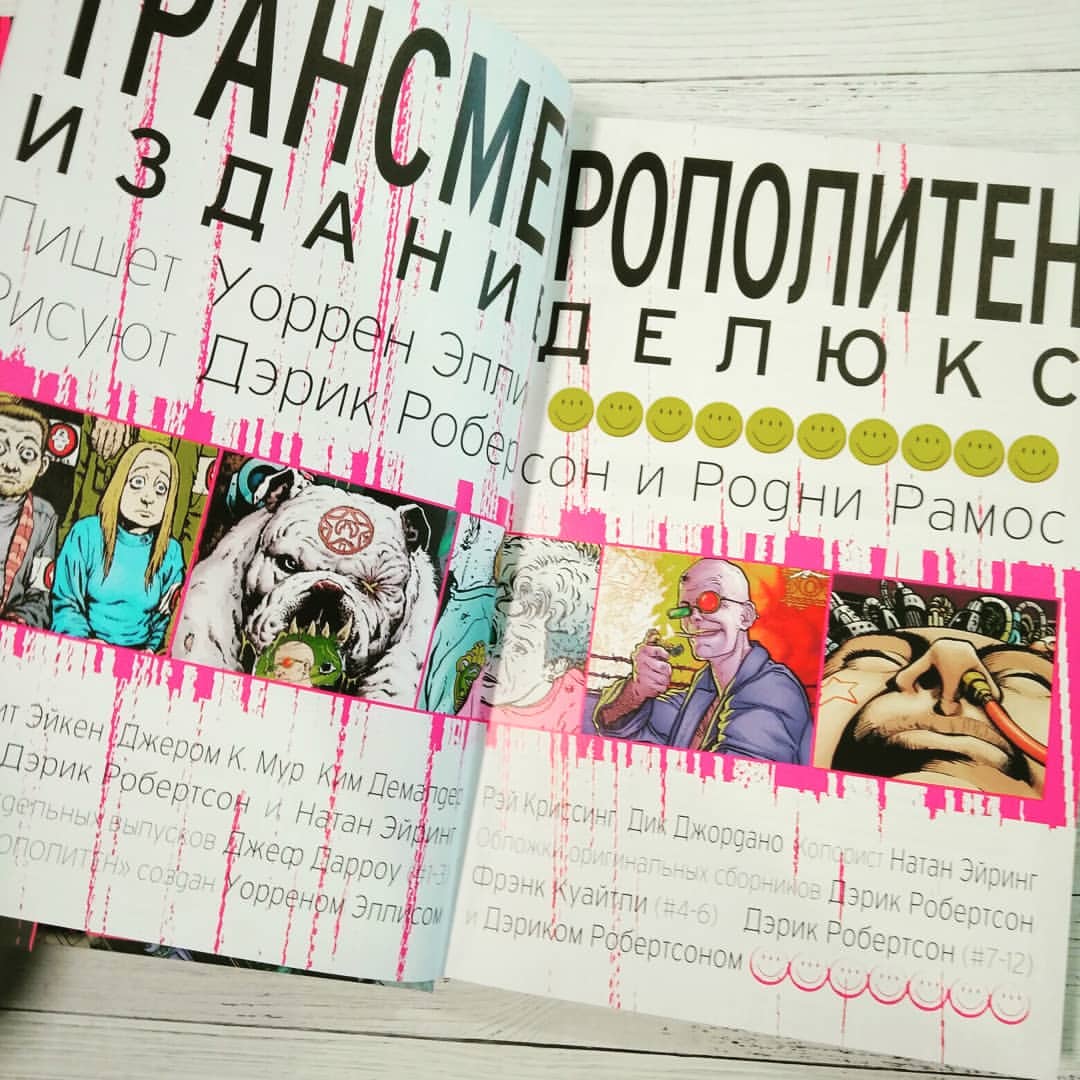 ТРАНСМЕТРОПОЛИТЕН
ИЗДАНИЕ ДЕЛЮКС
Пишет Уоррен Эллис
Рисуют Дэрик Робертсон и Родни Рамос
Эйкен Джером К. Мур Ким Демалдер Рэй Криссинг, Дик Джордано Колорист Натан Эйринг
Дэрик Робертсон и Натан Эйринг Обложки оригинальных сборников Дэрик Робертсон
выпусков Джеф Дарроу (#1-3) Фрэнк Куайтли (#4-6) Дэрик Робертсон (#7-12)
создан Уорреном Эллисом и Дэриком Робертсоном